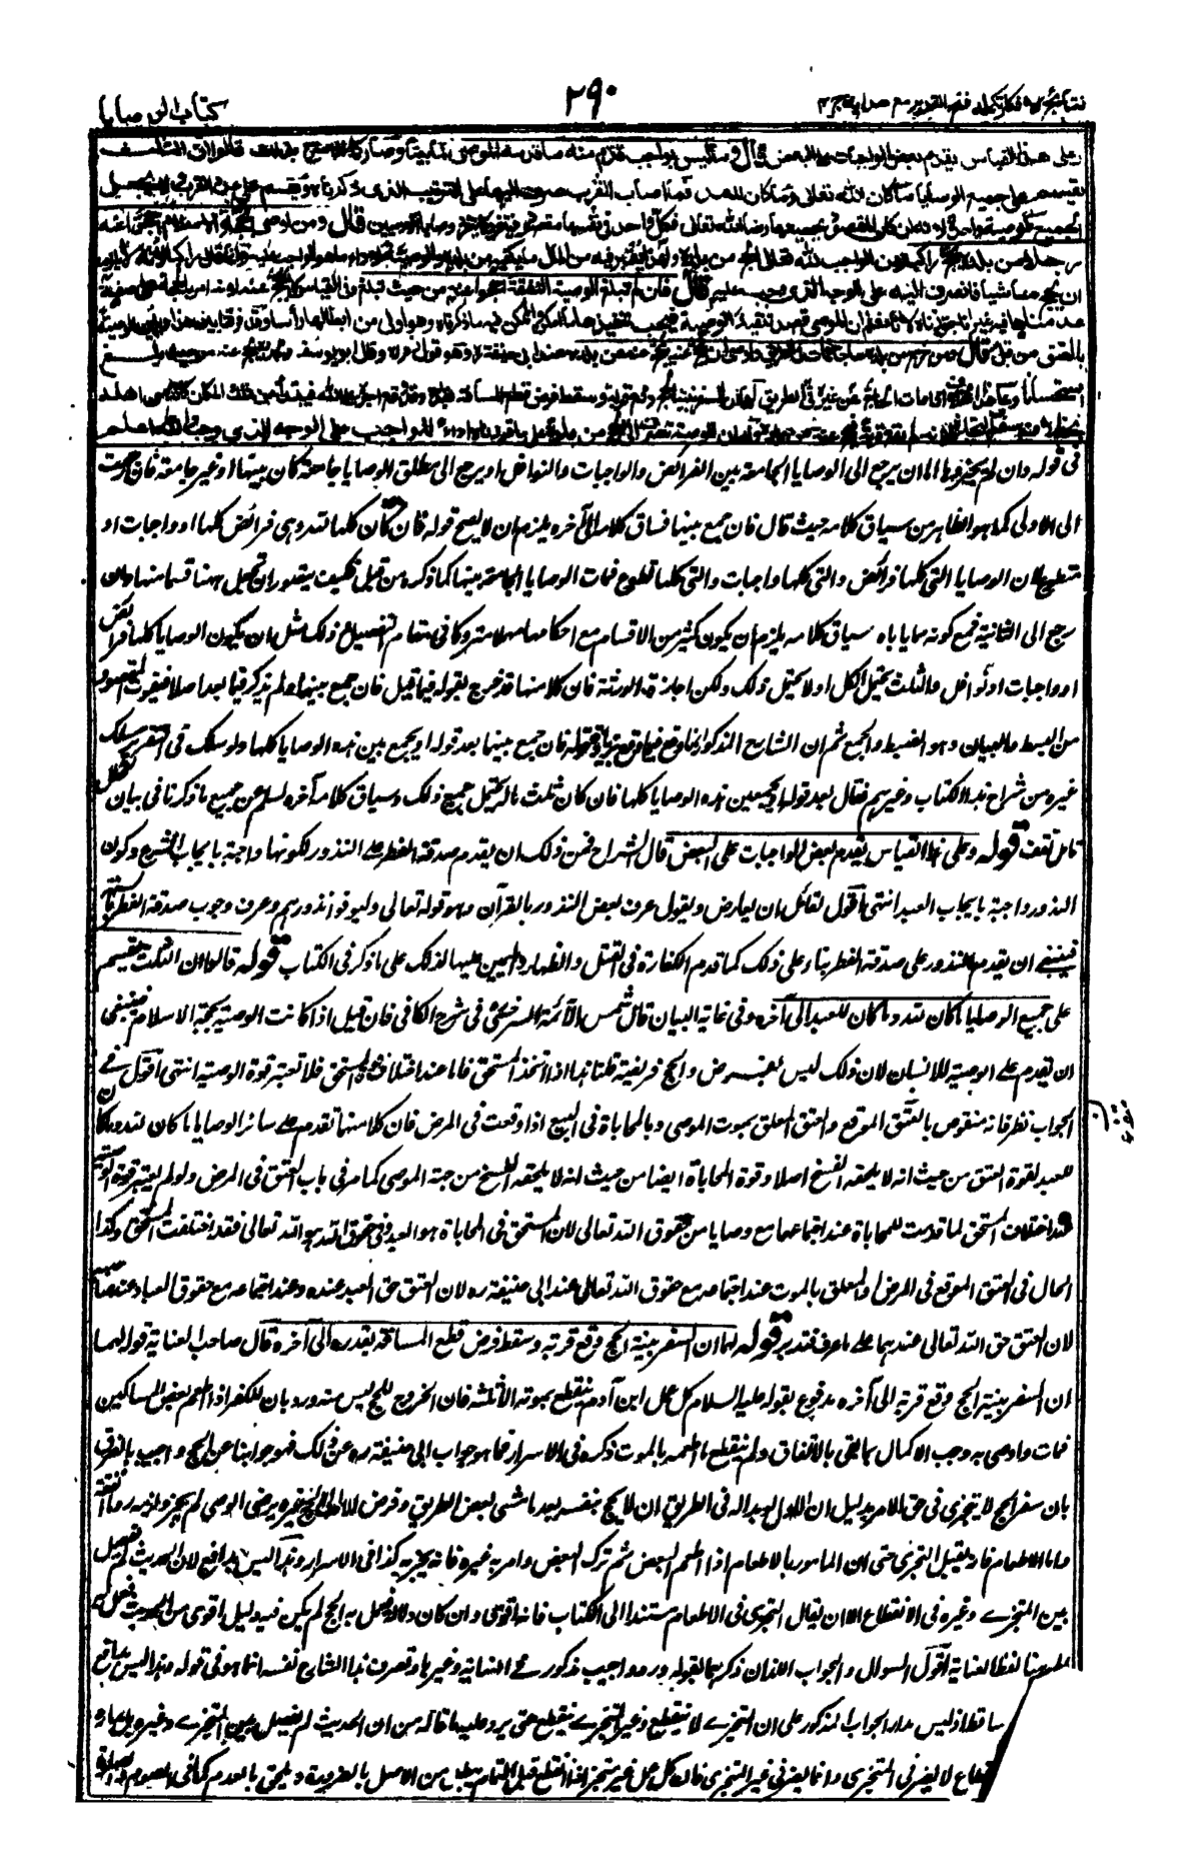 نتائج الافكار تكملة فتح القدير مع هداية ج ٤
٢٩٠
كتاب الوصايا
وعلى هذا القياس يقدم بعض الواجبات على البعض قال وما ليس بواجب قدم منه ما قدمه الموصي لما بينا وصار كما اذا صرح بذلك قالوا ان الثلث
يقسم على جميع الوصايا ما كان لله تعالى وما كان للعبد فما اصاب القرب صرف اليها على الترتيب الذي ذكرناه ويقسم على عدد القرب ولا يجعل
الجميع كوصية واحدة لانه ان كان المقصود بجميعها رضا الله تعالى فكل واحدة في نفسها مقصودة فتنفرد كما تنفرد وصايا الآدميين قال ومن اوصى بحجة الاسلام احجوا عنه
رجلا من بلده يحج راكبا لان الواجب لله تعالى الحج من بلده ولهذا يعتبر فيه من المال ما يكفيه من بلده والوصية لاداء ما هو الواجب عليه وانما قال راكبا لانه لا يلزمه
ان يحج ماشيا فانصرف اليه على الوجه الذي وجب عليه قال فان لم تبلغ الوصية النفقة احجوا عنه من حيث تبلغ وفي القياس لا يحج عنه لانه امر بالحجة على صفة
عدمناها فيه غير انا جوزناه لانا نعلم ان الموصي قصد تنفيذ الوصية فيجب تنفيذها ما امكن والممكن فيه ما ذكرناه وهو اولى من ابطالها رأسا وقد فرقنا بين هذا وبين الوصية
بالعتق من قبل قال ومن خرج من بلده حاجا فمات في الطريق واوصى ان يحج عنه يحج عنه من بلده عند ابي حنيفة ره وهو قول زفر ره وقال ابو يوسف ومحمد يحج عنه من حيث بلغ
استحسانا وعلى هذا الخلاف اذا مات الحاج عن غيره في الطريق لهما ان السفر بنية الحج وقع قربة وسقط فرض قطع المسافة بقدره وقد وقع اجره على الله فيبتدأ من ذلك المكان كانه من اهله
في قوله وان لم يخرج بها اما ان يرجع الى الوصايا الجامعة بين الفرائض والواجبات والنوافل او يرجع الى مطلق الوصايا جامعة كان بينها او غير جامعة فان رجعت
الى الاولى كما هو الظاهر من سياق كلامه حيث قال فان جمع بينها فساق كلامه الى آخره يلزم ان لا يصح قوله فان كان كلها لله وهي فرائض كلها او واجبات او
تطوع لان الوصايا التي كلها فرائض والتي كلها واجبات والتي كلها تطوع قسمت الوصايا الجامعة بينها كما ذكره من قبل فكيف يتصور ان تجعل ههنا قسما منها وان
رجع الى الثانية فمع كونه مما ياباه سياق كلامه يلزم ان يكون كثير من الاقسام مع احكامها مهملا متروكا في مقام التفصيل وذلك مثل ان يكون الوصايا كلها فرائض
او واجبات او نوافل والثلث يحتمل الكل او لا يحتمل ذلك ولكن اجازته الورثة فان كلا منها قد خرج بقوله فيما قبل فان جمع بينها ولم يذكر فيما بعد اصلا فيفوت المقصود
من البسط والبيان وهو الضبط والجمع ثم ان الشارح المذكور انما وقع فيما وقع بزيادة قوله فان جمع بينها بعد قوله او يجمع بين هذه الوصايا كلها ولو سلك في التقرير مسلك
غيره من شراح هذا الكتاب وغيرهم فقال بعد قوله او يجمع بين هذه الوصايا كلها فان كان ثلث ماله يحتمل جميع ذلك وسياق كلامه آخره لسلم عن جميع ما ذكرنا في بيان الخلل
تامل تقف قوله وعلى هذا القياس يقدم بعض الواجبات على البعض قال الشراح فمن ذلك ان يقدم صدقة الفطر على النذور لكونها واجبة بايجاب الشرع وكون
النذور واجبة بايجاب العبد انتهى اقول لقائل ان يعارض ويقول عرف بعض النذور بالقرآن وهو قوله تعالى وليوفوا نذورهم وعرف وجوب صدقة الفطر بالسنة
فينبغي ان يقدم النذور على صدقة الفطر بناء على ذلك كما قدم الكفارة في القتل والظهار واليمين عليها لذلك على ما ذكر في الكتاب قوله قالوا ان الثلث يقسم
على جميع الوصايا ما كان لله وما كان للعبد الى آخره وفي غاية البيان قال شمس الائمة السرخسي في شرح الكافي فان قيل اذا كانت الوصية بحجة الاسلام فينبغي
ان يقدم على الوصية للانسان لان ذلك ليس بفرض والحج فريضة قلنا هذا اذا اتحد المستحق فاما عند اختلاف المستحق فلا تعتبر قوة الوصية انتهى اقول في
الجواب نظر فانه منقوض بالعتق الموقع والعتق المعلق بموت الموصي وبالمحاباة في البيع اذا وقعت في المرض فان كلا منها تقدم على سائر الوصايا ما كان لله وما كان
للعبد لقوة العتق من حيث انه لا يلحقه الفسخ اصلا وقوة المحاباة ايضا من حيث انه لا يلحقه الفسخ من جهة الموصي كما مر في باب العتق في المرض ولو لم يعتبر قوة الوصية
عند اختلاف المستحق لما قدمت المحاباة عند اجتماعها مع وصايا من حقوق الله تعالى لان المستحق في المحاباة هو العبد وفي حقوق الله هو الله تعالى فقد اختلفت المستحق وكذا
الحال في العتق الموقع في المرض والمعلق بالموت عند اجتماعه مع حقوق الله تعالى عند ابي حنيفة ره لان العتق حق العبد عنده وعند اجتماعه مع حقوق العباد عند صاحبيه
لان العتق حق الله تعالى عندهما على ما عرف فتدبر قوله لهما ان السفر بنية الحج وقع قربة وسقط فرض قطع المسافة بقدره الى آخره قال صاحب العناية قوله لهما
ان السفر بنية الحج وقع قربة الى آخره مدفوع بقوله عليه السلام كل عمل ابن آدم ينقطع بموته الا ثلثة فان الخروج للحج ليس منه ورد بان المكفر اذا اطعم بعض المساكين
فمات واوصى به وجب الاكمال بما بقي بالاتفاق ولم ينقطع ما اطعمه بالموت ذكره في الاسرار فما هو جواب ابي حنيفة ره عن ذلك فهو جوابنا عن الحج واجيب بالفرق
بان سفر الحج لا يتجزى في حق الآمر بدليل ان الاول لو بدا له في الطريق ان لا يحج بنفسه بعد ما مشى بعض الطريق وفوض الامر الى غيره يرضى الوصي لم يجز ولزمه رد ما انفقه
واما الاطعام فانه يقبل التجزى حتى ان المامور بالاطعام اذا اطعم البعض ثم ترك البعض وامر به غيره فانه يجزيه كذا في الاسرار وهذا ليس بدافع لان الحديث لم يفصل
بين المتجزي وغيره في الانقطاع الا ان يقال التجزى في الاطعام مستندا الى الكتاب فانه اقوى وان كان دلالة ولم يكن في الحج دليل اقوى من الحديث فعمل به
لفظ العناية اقول السؤال والجواب اللذان ذكرهما بقوله ورد واجيب مذكور في النهاية وغيرها وتصرف هذا الشارح نفسه انما هو في قوله وهذا ليس بدافع
ساقط اذ ليس مدار الجواب المذكور على ان المتجزي لا ينقطع وغير المتجزي ينقطع حتى يرد عليه ما قاله من ان الحديث لم يفصل بين المتجزي وغيره بل مداره
لا يضر في المتجزى وانما يضر في غير المتجزى فان كل عمل غير متجز اذا انقطع قبل التمام يبطل من الاصل بالضرورة ويلحق بالعدم كما في الصوم والصلوة